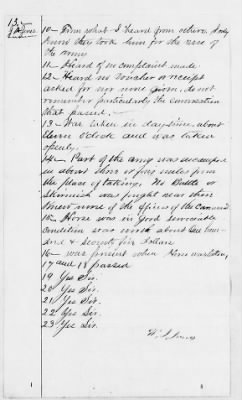 13.
10 - From what I heard from others, I only
know they took him for the use of
the army
11 - Heard of no complaint made
12 - Heard no voucher or receipt
asked for nor none given, do not
remember particularly the conversation
that passed.
13 - Was taken in daytime, about
o'clock and was taken
openly.
14 - Part of the army was encamped
in about three or four miles from
the place of taking, No Battle or
Skirmish was fought near there
know none of the officers of the command
15 - Horse was in good serviceable
condition was worth about one hun-
dred & seventy five Dollars
16 - was present when Horse was taken,
17 and 18 passed
19 Yes Sir.
20 Yes Sir.
21 Yes Sir.
22 Yes Sir.
23 Yes Sir.